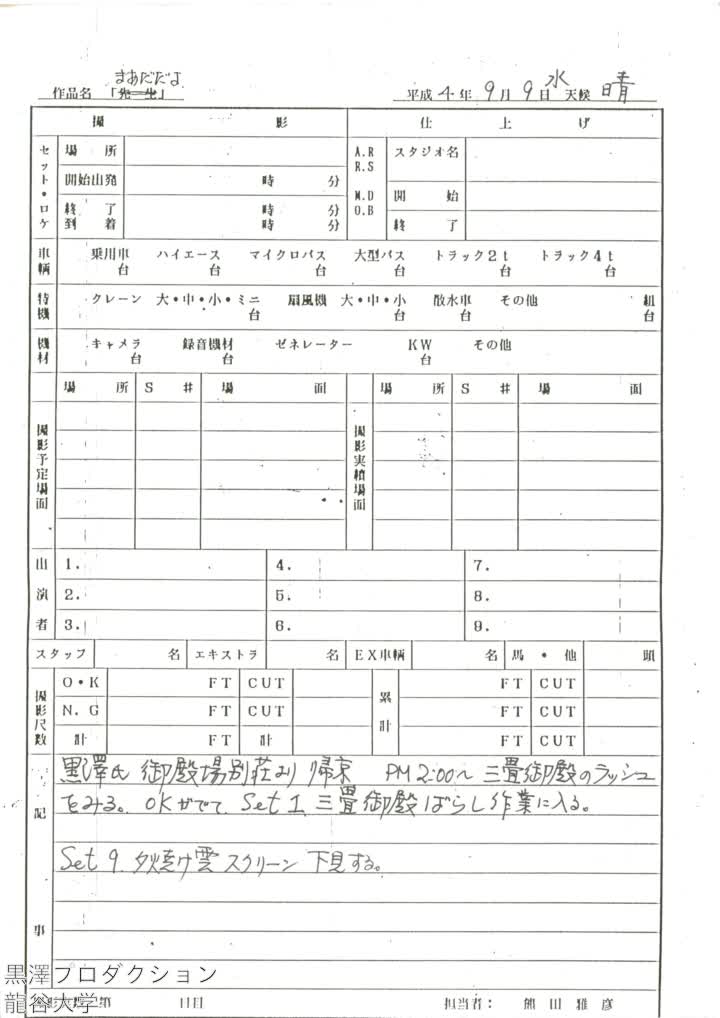 まあだだよ
作品名 「先生」 平成4年9月9日 水 天候 晴
撮影 仕上げ
セット・ロケ 場所 A.R R.S スタジオ名
開始出発 時 分 M.D O.B 開始
終了到着 時 分 時 分 終了
車輌 乗用車 台 ハイエース 台 マイクロバス 台 大型バス 台 トラック2t 台 トラック4t 台
特機 クレーン 大・中・小・ミニ 台 扇風機 大・中・小 台 散水車 台 その他 組 台
機材 キャメラ 台 録音機材 台 ゼネレーター KW 台 その他
撮影予定場面 場所 S # 場面 撮影実績場面 場所 S # 場面
出演者 1. 4. 7.
2. 5. 8.
3. 6. 9.
スタッフ 名 エキストラ 名 EX車輌 名 馬・他 頭
撮影尺数 O・K FT CUT 累計 FT CUT
N.G FT CUT FT CUT
計 FT 計 FT CUT
記事
黒澤氏 御殿場別荘より帰京 PM2:00〜 三畳御殿のラッシュ
をみる。OKがでて、Set 1 三畳御殿ばらし作業に入る。
Set 9. 夕焼け雲スクリーン 下見する。
黒澤プロダクション
龍谷大学
第 日目 担当者: 熊田雅彦